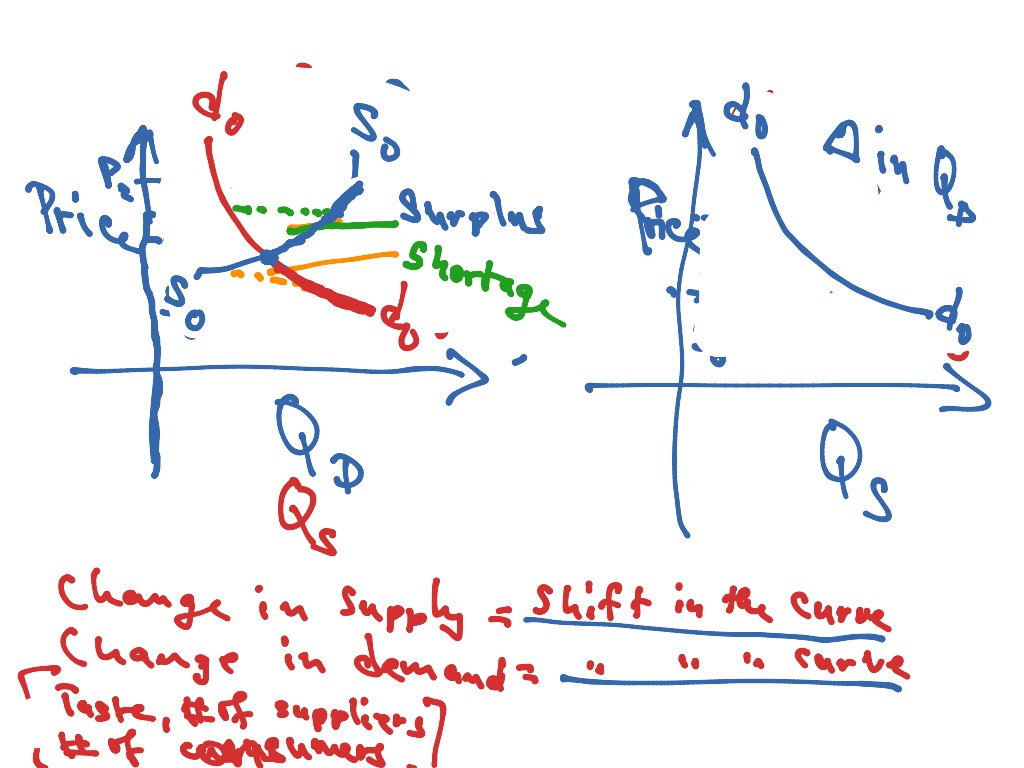 d₀
S₀
P₂
Price
Surplus
Shortage
S₀
d₀
Q_D
Q_S
d₀
Δ in Q_D
Price
d₀
Q_S
Change in supply = shift in the curve
Change in demand = " " " curve
Taste, # of suppliers
# of consumers